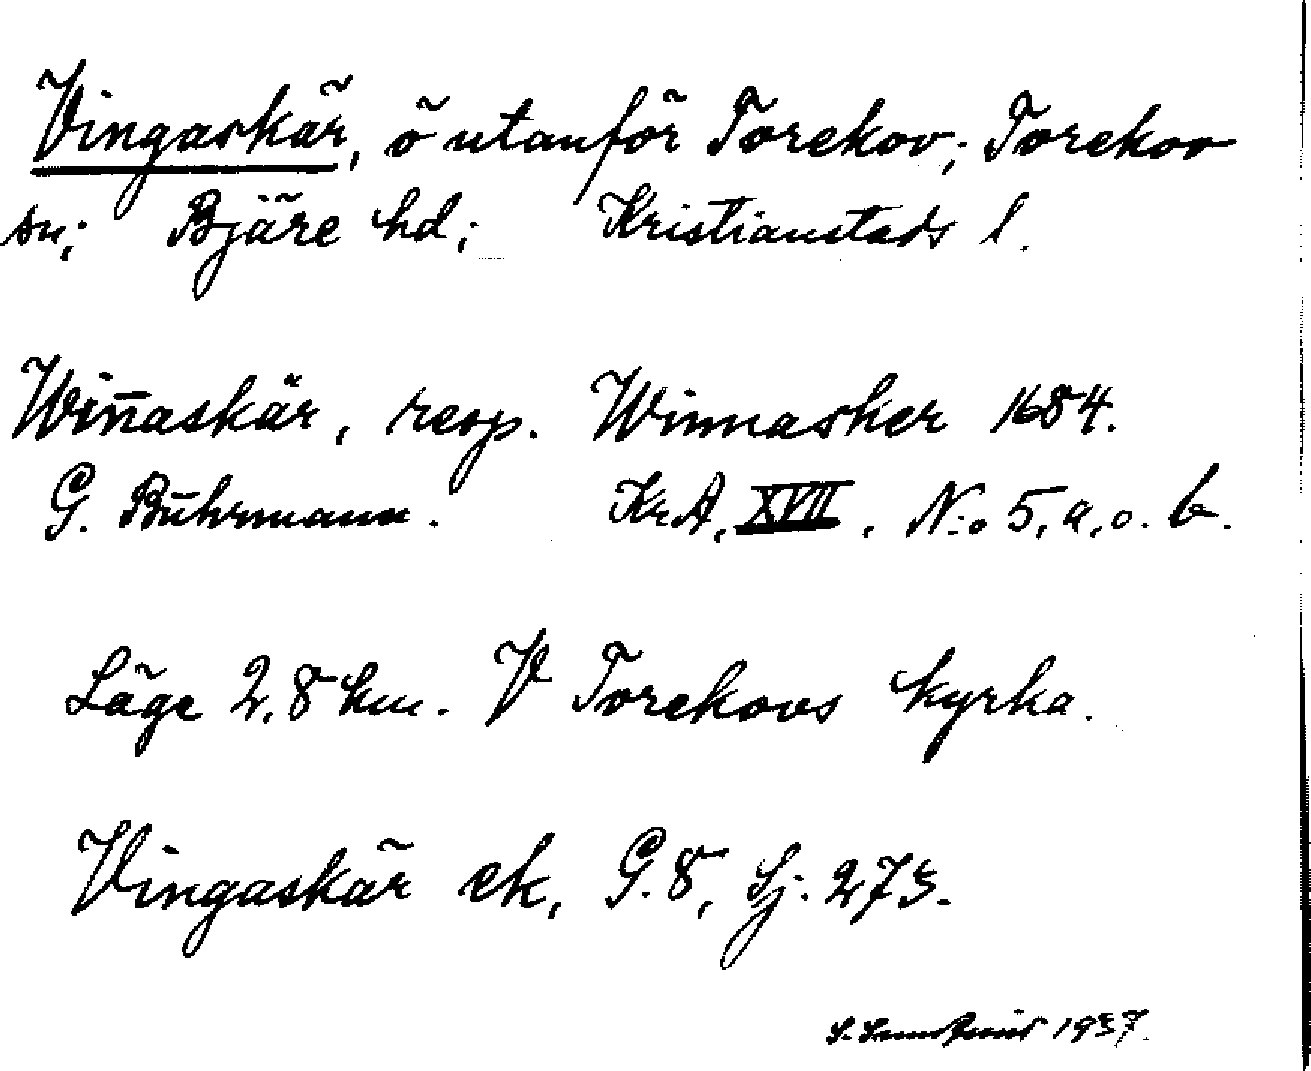 Vingaskär, ö utanför Torekov; Torekov
sn; Bjäre hd; Kristianstads l.
Win̄askär, resp. Winnasker 1684.
G. Buhrmann. KrA, XVII. N:o 5, a, o. b.
Läge 2,8 km. V Torekovs kyrka.
Vingaskär ek, G.8, Sj. 273.
1937.